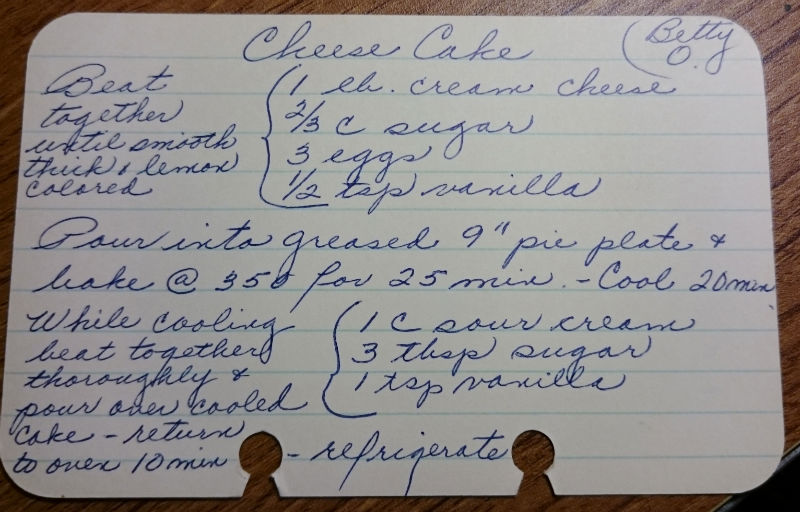 Cheese Cake
(Betty
O.
Beat
together
until smooth
thick & lemon
colored
1 lb. cream cheese
2/3 C sugar
3 eggs
1/2 tsp vanilla
Pour into greased 9" pie plate &
bake @ 350 for 25 min. - Cool 20 min.
While cooling
beat together
thoroughly &
pour over cooled
cake - return
to oven 10 min
1 C sour cream
3 tbsp sugar
1 tsp vanilla
- refrigerate